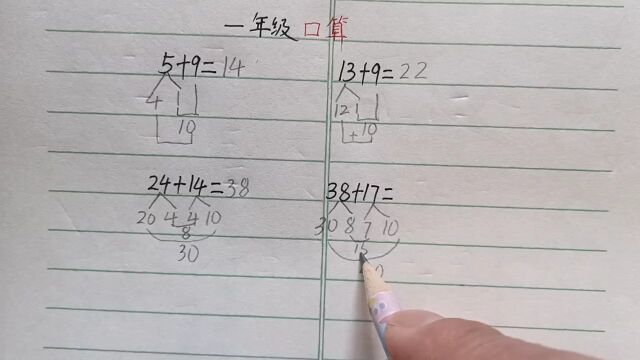 一年级 口算
5+9=14
4 1
10
13+9=22
12 1
+ 10
24+14=38
20 4 4 10
8
30
38+17=
30 8 7 10
15